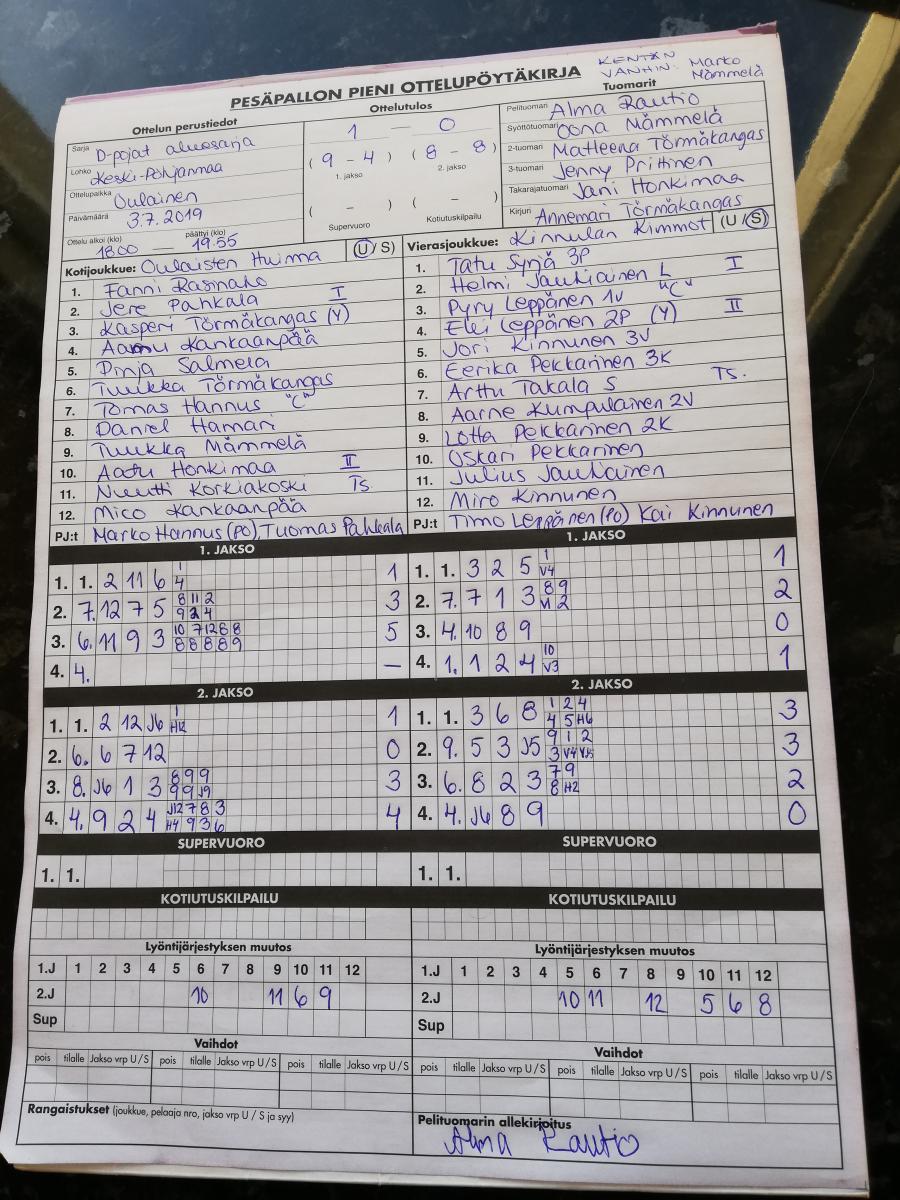 KENTÄN VANHIN: Marko Mämmelä
PESÄPALLON PIENI OTTELUPÖYTÄKIRJA
Ottelun perustiedot
Sarja D-pojat aluesarja
Lohko Keski-Pohjanmaa
Ottelupaikka Oulainen
Päivämäärä 3.7.2019
Ottelu alkoi (klo) päättyi (klo)
1800 — 19.55
Ottelutulos
1 — 0
( 9 - 4 ) ( 8 - 8 )
1. jakso 2. jakso
( - ) ( - )
Supervuoro Kotiutuskilpailu
Tuomarit
Pelituomari Alma Rautio
Syöttötuomari Oona Mämmelä
2-tuomari Matleena Törmäkangas
3-tuomari Jenny Prittinen
Takarajatuomari Jani Honkimaa
Kirjuri Annemari Törmäkangas
Kotijoukkue: Oulaisten Huima (U / S)
1. Fanni Rasinaho
2. Jere Pahkala I
3. Kasperi Törmäkangas (Y)
4. Kankaanpää
5. Pinja Salmela
6. Tuukka Törmäkangas
7. Tomas Hannus "C"
8. Daniel Hamari
9. Tuukka Mämmelä
10. Aatu Honkimaa II
11. Nuutti Korkiakoski Ts
12. Mico Kankaanpää
PJ:t Marko Hannus (PO), Tuomas Pahkala
Vierasjoukkue: Kinnulan Kimmot (U / S)
1. Tatu Syrjä 3P
2. Helmi Jauhiainen L I
3. Pyry Leppänen 1V "C"
4. Elli Leppänen 2P (Y) II
5. Jori Kinnunen 3V
6. Eerika Pekkarinen 3K
7. Arttu Takala S Ts.
8. Aarne Kumpulainen 2V
9. Lotta Pekkarinen 2K
10. Oskari Pekkarinen
11. Julius Jauhiainen
12. Miro Kinnunen
PJ:t Timo Leppänen (PO) Kai Kinnunen
1. JAKSO
1. 1. 2 11 6 1 4 1
2. 7. 12 7 5 8 11 2 9 2 4 3
3. 6. 11 9 3 10 7 12 8 8 8 8 8 8 9 5
4. 4. —
1. JAKSO
1. 1. 3 2 5 1 V4 1
2. 7. 7 1 3 8 9 V1 2 2
3. 4. 10 8 9 0
4. 1. 1 2 4 10 V3 1
2. JAKSO
1. 1. 2 12 J6 1 H12 1
2. 6. 6 7 12 0
3. 8. J6 1 3 8 9 9 9 9 J9 3
4. 4. 9 2 4 J12 7 8 3 H4 9 3 6 4
2. JAKSO
1. 1. 3 6 8 1 2 4 4 5 H6 3
2. 9. 5 3 J5 9 1 2 3 V4 3
3. 6. 8 2 3 7 9 8 H2 2
4. 4. J6 8 9 0
SUPERVUORO
1. 1.
SUPERVUORO
1. 1.
KOTIUTUSKILPAILU
KOTIUTUSKILPAILU
Lyöntijärjestyksen muutos
1.J 1 2 3 4 5 6 7 8 9 10 11 12
2.J 10 11 6 9
Sup
Lyöntijärjestyksen muutos
1.J 1 2 3 4 5 6 7 8 9 10 11 12
2.J 10 11 12 5 6 8
Sup
Vaihdot
pois tilalle Jakso vrp U / S pois tilalle Jakso vrp U / S pois tilalle Jakso vrp U / S
Vaihdot
pois tilalle Jakso vrp U / S pois tilalle Jakso vrp U / S pois tilalle Jakso vrp U / S
Rangaistukset (joukkue, pelaaja nro, jakso vrp U / S ja syy)
Pelituomarin allekirjoitus
Alma Rautio